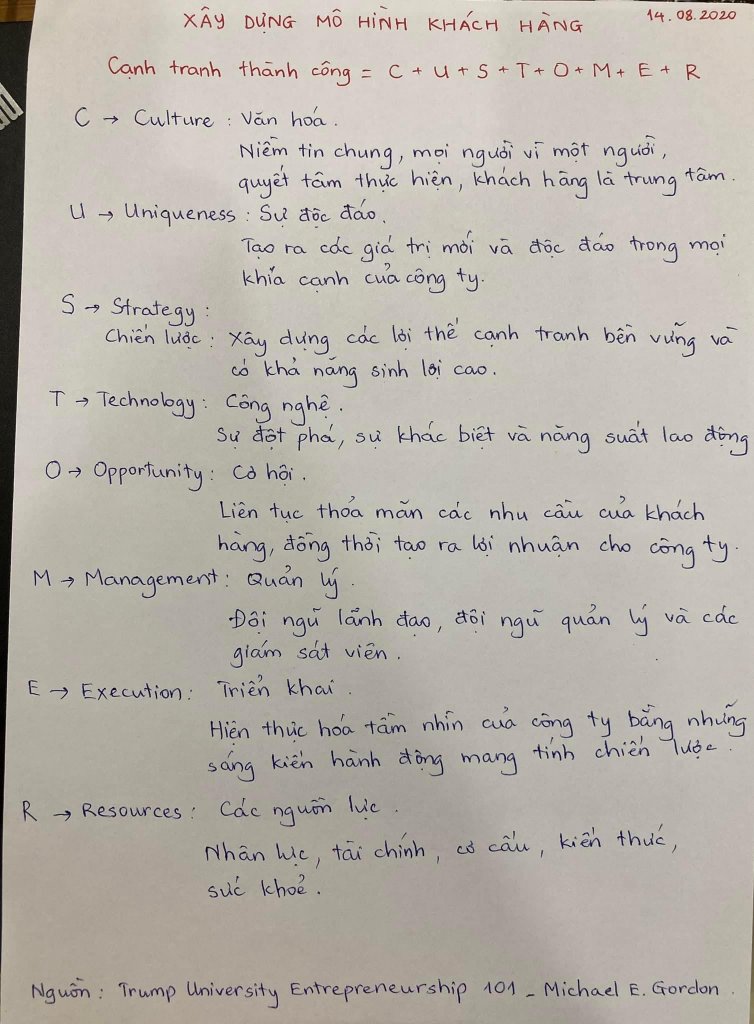 XÂY DỰNG MÔ HÌNH KHÁCH HÀNG 14.08.2020
Cạnh tranh thành công = C + U + S + T + O + M + E + R
C → Culture : Văn hóa.
Niềm tin chung, mọi người vì một người,
quyết tâm thực hiện, khách hàng là trung tâm.
U → Uniqueness : Sự độc đáo.
Tạo ra các giá trị mới và độc đáo trong mọi
khía cạnh của công ty.
S → Strategy :
Chiến lược : Xây dựng các lợi thế cạnh tranh bền vững và
có khả năng sinh lợi cao.
T → Technology : Công nghệ.
Sự đột phá, sự khác biệt và năng suất lao động
O → Opportunity : Cơ hội.
Liên tục thỏa mãn các nhu cầu của khách
hàng, đồng thời tạo ra lợi nhuận cho công ty.
M → Management : Quản lý.
Đội ngũ lãnh đạo, đội ngũ quản lý và các
giám sát viên.
E → Execution : Triển khai.
Hiện thực hóa tầm nhìn của công ty bằng những
sáng kiến hành động mang tính chiến lược.
R → Resources : Các nguồn lực.
Nhân lực, tài chính, cơ cấu, kiến thức,
sức khoẻ.
Nguồn : Trump University Entrepreneurship 101 - Michael E. Gordon.